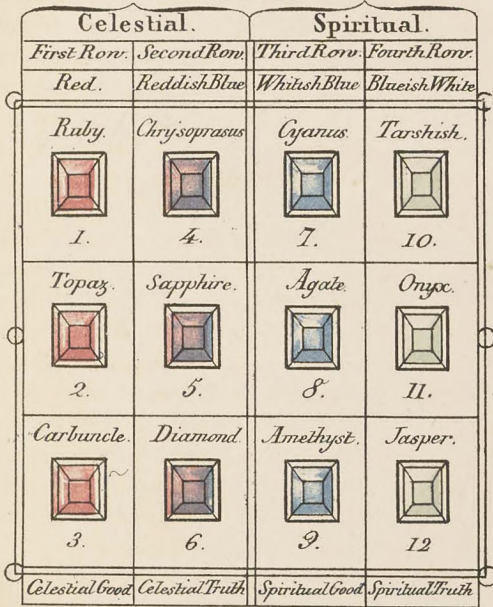 Celestial. Spiritual.
First Row. Second Row. Third Row. Fourth Row.
Red. Reddish Blue Whitish Blue Blueish White
Ruby. Chrysoprasus Cyanus. Tarshish.
1. 4. 7. 10.
Topaz. Sapphire. Agate. Onyx.
2. 5. 8. 11.
Carbuncle. Diamond. Amethyst. Jasper.
3. 6. 9. 12
Celestial Good Celestial Truth Spiritual Good Spiritual Truth